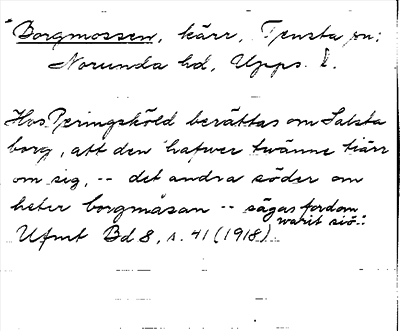 Borgmossen, kärr, Tensta sn;
Norunda hd, Upps. l.
Hos Peringsköld berättas om Salsta
borg, att den hafwer twänne tiärr
om sig, -- det andra söder om
heter borgmåsan -- sägas fordom
warit siö.:
Ufmt Bd 8, s. 41 (1918)